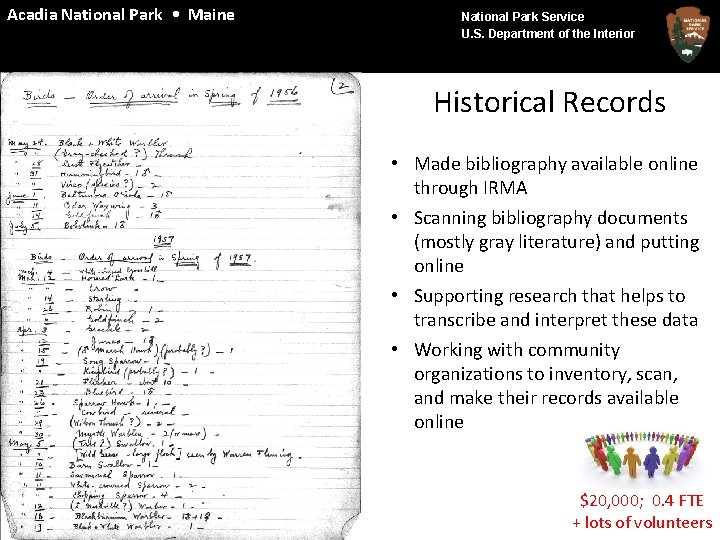 Acadia National Park • Maine
National Park Service
U.S. Department of the Interior
NATIONAL PARK SERVICE
Birds — Order of arrival in Spring of 1956 (2
May 24. Black & White Warbler
(Gray-cheeked?) Thrush
" 28 Least Flycatcher
" 31 Hummingbird - 1
" " Vireo (species?) - 2
June 1. Baltimore Oriole - 1
" 11 Cedar Waxwing - 3
" 14 Goldfinch - 1
July 5. Bobolink - 1
1957
Birds — Order of arrival in Spring of 1957.
4 - White-winged Crossbill
Mar. 12 - Horned Lark - 1
" " Crow -
" 14 - Starling -
" 26 - Robin - 1
" " Goldfinch - 2
Apr. 8 - Grackle - 2
" 12 - Junco -
" 15 - (Marsh Hawk) (probably?) - 1
" 19 - Song Sparrow - 1
" " - Kingbird (probably?) - 1
" 21 - Flicker - about 10 -
" 26 - Sparrow Hawk - 1
" " - Cowbird - several
" 29 - (Wilson Thrush?) - 2 -
" 30 - Myrtle Warbler - (2 or more)
May 5 - (Tree?) Swallow. 1 -
" " - [Wild Geese - large flock] seen by Warren Fleming.
" 10 - Barn Swallow - 1 -
" 11 - Savannah Sparrow - 1
" " - White-crowned Sparrow - 2 -
" " - Chipping Sparrow - 4 -
" 12 - (Nashville?) Warbler - 1 -
" 18 - Blackburnian Warbler -
" 19 - Black & White Warbler -
Historical Records
• Made bibliography available online
through IRMA
• Scanning bibliography documents
(mostly gray literature) and putting
online
• Supporting research that helps to
transcribe and interpret these data
• Working with community
organizations to inventory, scan,
and make their records available
online
$20,000; 0.4 FTE
+ lots of volunteers